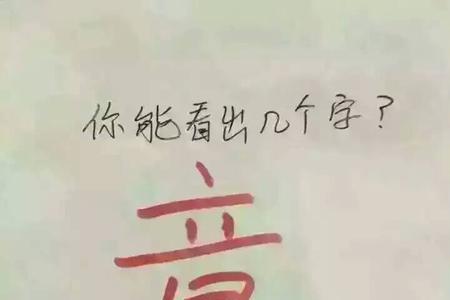 你能看出几个字？